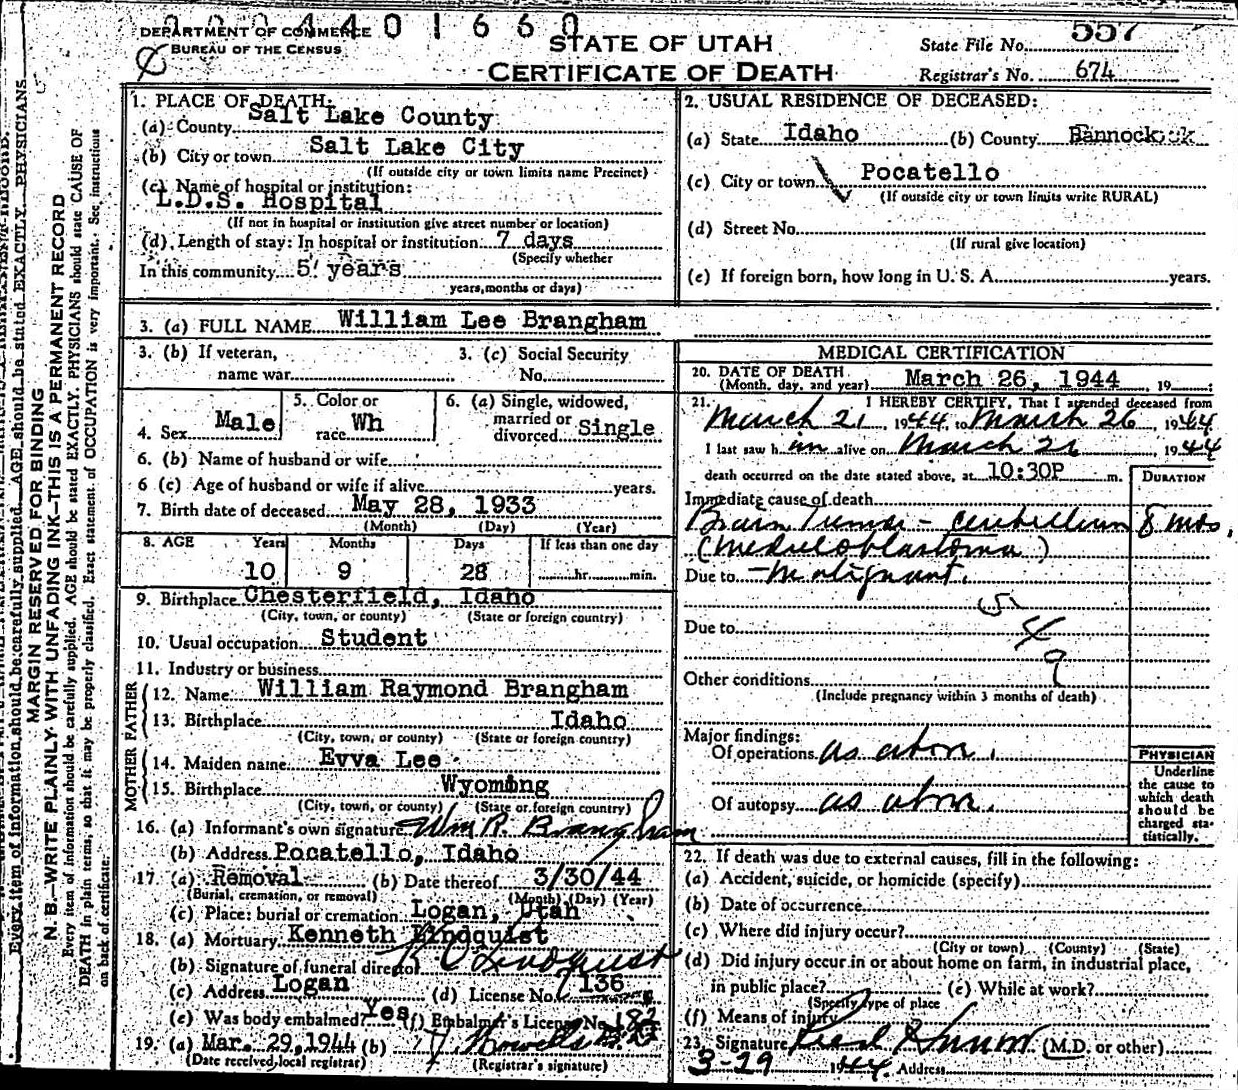 0 0 0 4 4 0 1 6 6 0
DEPARTMENT OF COMMERCE
BUREAU OF THE CENSUS
STATE OF UTAH
CERTIFICATE OF DEATH
State File No. 557
Registrar's No. 674
1. PLACE OF DEATH:
(a) County Salt Lake County
(b) City or town Salt Lake City
(If outside city or town limits name Precinct)
(c) Name of hospital or institution:
L.D.S. Hospital
(If not in hospital or institution give street number or location)
(d) Length of stay: In hospital or institution 7 days
(Specify whether
In this community 5 years
years, months or days)
2. USUAL RESIDENCE OF DECEASED:
(a) State Idaho (b) County Bannock
(c) City or town Pocatello
(If outside city or town limits write RURAL)
(d) Street No.
(If rural give location)
(e) If foreign born, how long in U. S. A. years.
3. (a) FULL NAME William Lee Brangham
3. (b) If veteran,
name war
3. (c) Social Security
No.
4. Sex Male
5. Color or
race Wh
6. (a) Single, widowed,
married or
divorced Single
6. (b) Name of husband or wife
6 (c) Age of husband or wife if alive years.
7. Birth date of deceased May 28, 1933
(Month) (Day) (Year)
8. AGE Years Months Days If less than one day
10 9 28 hr. min.
9. Birthplace Chesterfield, Idaho
(City, town, or county) (State or foreign country)
10. Usual occupation Student
11. Industry or business
FATHER
12. Name William Raymond Brangham
13. Birthplace Idaho
(City, town, or county) (State or foreign country)
MOTHER
14. Maiden name Evva Lee
15. Birthplace Wyoming
(City, town, or county) (State or foreign country)
16. (a) Informant's own signature Wm R. Brangham
(b) Address Pocatello, Idaho
17. (a) Removal (b) Date thereof 3/30/44
(Burial, cremation, or removal) (Month) (Day) (Year)
(c) Place: burial or cremation Logan, Utah
18. (a) Mortuary Kenneth Lindquist
(b) Signature of funeral director K C Lindquist
(c) Address Logan (d) License No. 136
(e) Was body embalmed? Yes (f) Embalmer's License No. 182
19. (a) Mar. 29, 1944 (b)
(Date received local registrar) (Registrar's signature)
MEDICAL CERTIFICATION
20. DATE OF DEATH
(Month, day, and year) March 26, 1944, 19
21. I HEREBY CERTIFY, That I attended deceased from
March 21, 1944, to March 26, 1944
I last saw him alive on March 26, 1944
death occurred on the date stated above, at 10:30P m.
DURATION
Immediate cause of death
Brain Tumor - Cerebellum 8 mos.
(Meduloblastoma)
Due to - Malignant.
54
Due to
9
Other conditions
(Include pregnancy within 3 months of death)
Major findings:
Of operations as above.
Of autopsy as above.
PHYSICIAN
Underline
the cause to
which death
should be
charged sta-
tistically.
22. If death was due to external causes, fill in the following:
(a) Accident, suicide, or homicide (specify)
(b) Date of occurrence
(c) Where did injury occur?
(City or town) (County) (State)
(d) Did injury occur in or about home on farm, in industrial place,
in public place? (e) While at work?
(Specify type of place
(f) Means of injury
23. Signature (M.D. or other)
3-29 1944. Address
Every item of information should be carefully supplied. AGE should be stated EXACTLY. PHYSICIANS
MARGIN RESERVED FOR BINDING
N. B.—WRITE PLAINLY WITH UNFADING INK—THIS IS A PERMANENT RECORD
Every item of information should be carefully supplied. AGE should be stated EXACTLY. PHYSICIANS should state CAUSE OF
DEATH in plain terms, so that it may be properly classified. Exact statement of OCCUPATION is very important. See instructions
on back of certificate.